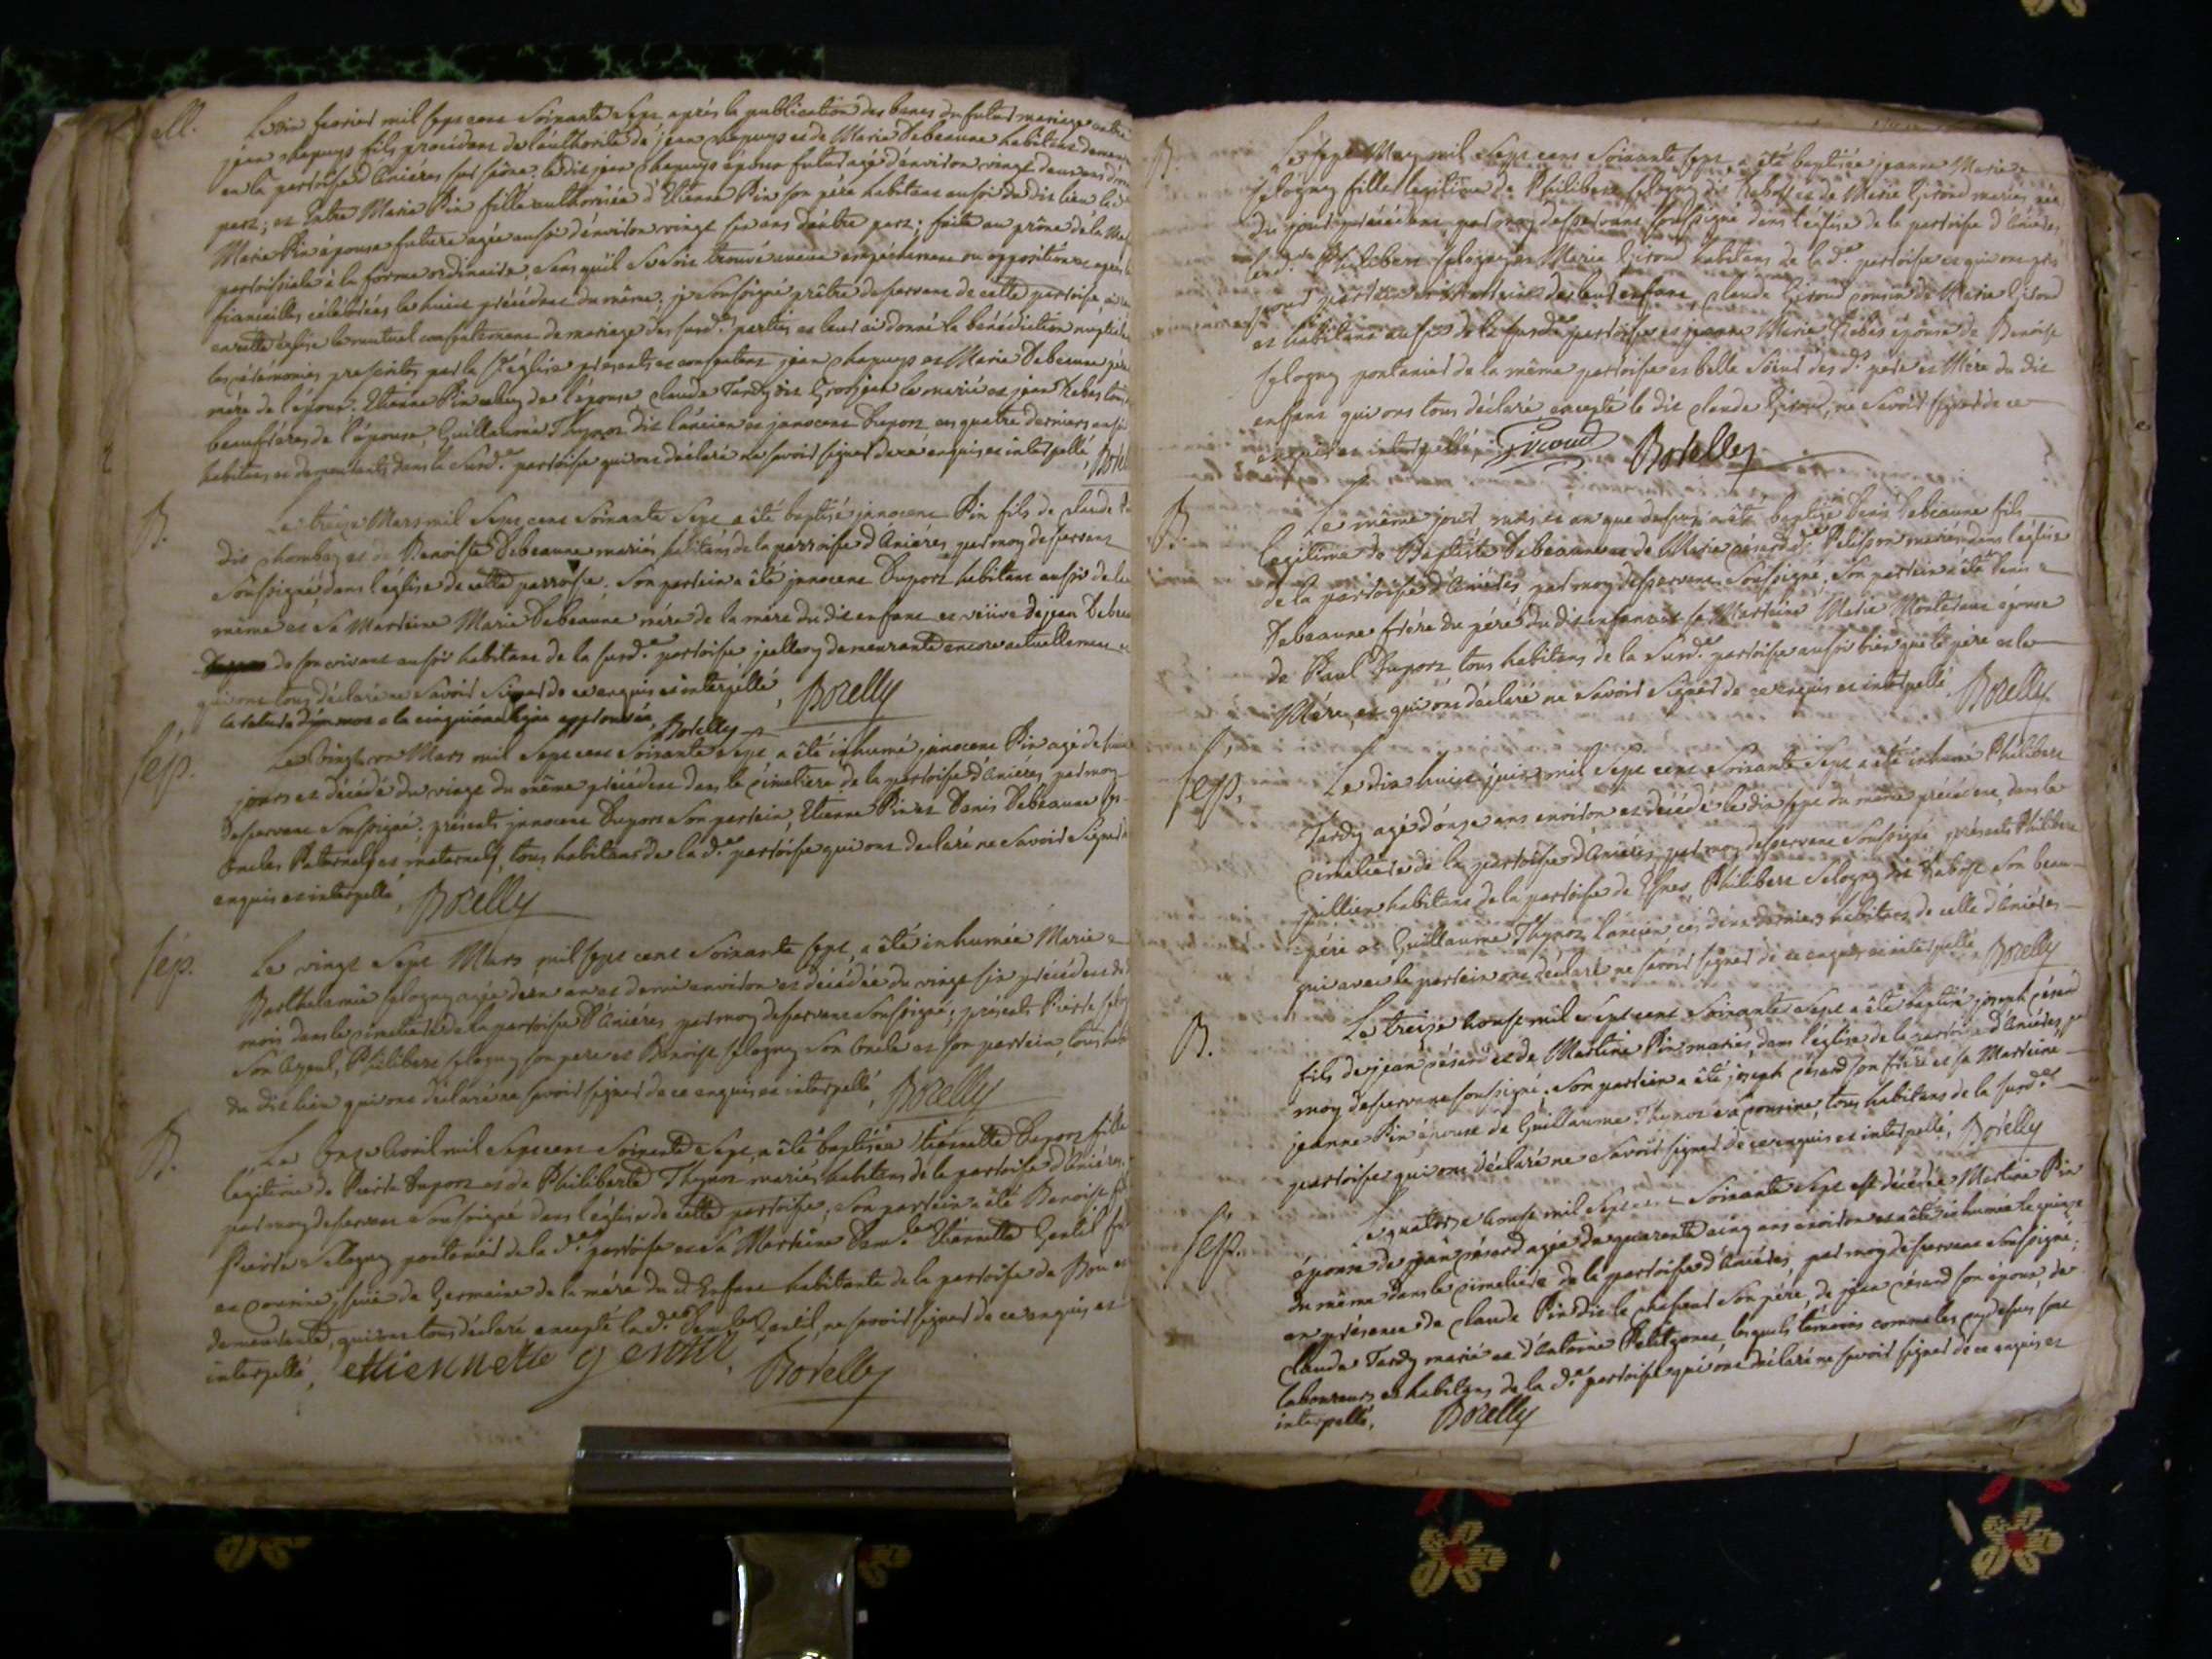 ell. Le dix fevrier mil sept cent Soixante Sept après la publication des bancs du futur mariage entre
jean chapuys fils procédant de l'authorité de jean chapuys et de Marie Debeaune habitans demeurants
en la parroisse d'Aniéres sur saône, le dit jean chapuys époux futur agé d'environ vingt deux ans d'une
part; et Entre Marie Pin fille authorisée d'Etienne Pin son pére habitant aussi du dit lieu
Marie Pin épouse future agée aussi d'environ vingt six ans d'autre part; faite au prône de la
parroissiale à la forme ordinaire, sans qu'il se soit trouvé aucun empéchement ou opposition et après les
fiancailles célébrées le huit précédent du même, je soussigné prêtre desservant de cette parroisse ai
en cette église le mutuel consentement de mariage des susd. parties et leur ai donné la bénédiction nuptiale
les cérémonies prescrites par la Ste église présents et consentans jean chapuys et Marie Debeaune pére
mére de l'époux, Etienne Pin celuy de l'épouse claude Tardy dit Grosjean le marié et jean Rebes tous
beaufréres de l'épouse, Guillaume Thynon dit l'áncien et jnnocent Duport ces quatre derniers aussi
habitans et demeurants dans la Susd.e parroise qui ont déclaré ne savoir signer de ce enquis et interpellé,
B. Le treize Mars mil Sept cent Soixante Sept a été baptisé jnnocent Pin fils de claude
dit chombaz et de Benoiste Debeaune mariés habitans de la parroisse d'Aniéres, par moy desservant
soussigné, dans l'église de cette parroisse, Son parrein a été jnnocent Duport habitant aussi de la
même et Sa Marreine Marie Debeaune mére de la mére du dit enfant et veüve de jean
de son vivant aussi habitant de la susd.e parroisse jcelle y demeurante encore actuellement et
qui ont tous déclaré ne savoir Signer de ce enquis et interpellé, Borelly
la rature d'un mot a la cinquiéme ligne approuvée Borelly
Sép. Le vingt un Mars mil Sept cent Soixante Sept a été inhumé jnnocent Pin agé de huit
jours et décédé du vingt du même précédent dans le cimetiére de la parroisse d'Aniéres, par moy
desservant Soussigné, présents jnnocent Duport Son parrein, Etienne Pin et Denis Debeaune ses
Oncles Paternels et maternels, tous habitans de la d.e parroisse qui ont declaré ne Savoir Signer
enquis et interpellé, Borelly
Sép. Le vingt Sept Mars mil sept cent Soixante sept, a été inhumée Marie
Barthelemie selogny agée d'un an et demi environ et décédée du vingt six précédent du
mois dans le cimetiére de la parroisse d'Aniéres par moy desservant Soussigné, présents Pierre
Son Ayeul, Philibert selogny son pere et Benoist selogny Son Oncle et son parrein, tous
du dit lieu qui ont déclaré ne savoir signer de ce enquis et interpellé, Borelly
B. Le Onze Avril mil Sept cent Soixante Sept, a été baptisée Etiennette Duport fille
legitime de Pierre Duport et de Philiberte Thynon mariés, habitans de la parroisse d'Aniéres,
par moy desservant Soussigné dans l'église de cette parroisse, Son parrein a été Benoist fils
Pierre Selogny pontonier de la d.e parroisse et sa Marreine Dem.lle Etiennette Gentil
et cousine, issüe de Germaine de la mére du d. Enfant habitante de la parroisse de
demeurante, qui ont tous déclaré excepté la d.e Dem.lle Gentil, ne savoir signer de ce enquis et
interpellé, ettiennette gentil, Borelly
B. Le sept May mil Sept cent Soixante sept, a été baptisée jeanne Marie
Selogny fille legitime de Philibert selogny dit Rabost et de Marie Giroud mariés, née
du jour précédent, par moy desservant soussigné dans l'église de la parroisse d'Aniéres,
Philibert selogny et Marie Giroud habitans de la d.e parroisse et qui ont pris
pour parrein et Marreine de leur enfant claude Giroud cousin de Marie Giroud
et habitant aussi de la susd.e parroisse et jeanne Marie Rebes épouse de Benoist
selogny pontonier de la même parroisse et belle Sœur des d. pére et Mére du dit
enfant qui ont tous déclaré excepté le dit claude Giroud, ne Savoir signer de ce
enquis et interpellé, Giroud Borelly
B. Le même jour, mois et an que dessus, a été baptisé Denis Debeaune fils
legitime de Baptiste Debeaune et de Marie césard d.e Pelisson mariés, dans l'église
de la parroisse d'Aniéres, par moy desservant soussigné, Son parrein a été Denis
Debeaune frére du pére du dit enfant et sa Marreine Marie Monterrat épouse
de Paul Duport tous habitans de la Susd.e parroisse aussi bien que le pére et la
Mére, et qui ont déclaré ne savoir signer de ce enquis et interpellé Borelly
Sép. Le dix huit juin mil Sept cent Soixante Sept a été inhumé Philibert
Tardy agé d'onze ans environ et décédé le dix sept du même précédent, dans le
cimetiére de la parroisse d'Aniéres par moy desservant Soussigné présents Philibert
juillien habitant de la parroisse de, Philibert Selogny dit Rabost Son beau
pére et Guillaume Thynon l'áncien ces deux derniers habitans de celle d'Aniéres
qui avec le parrein ont declaré ne savoir signer de ce enquis et interpellé, Borelly
B. Le treize Aoust mil sept cent Soixante Sept a été baptisé joseph césard
fils de jean césard et de Martine Pin mariés, dans l'église de la parroisse d'Aniéres, par
moy desservant soussigné, Son parrein a été joseph césard son frére et sa Marreine
jeanne Pin épouse de Guillaume Thynon sa cousine, tous habitans de la susd.e
parroisse qui ont déclaré ne Savoir signer de ce enquis et interpellé, Borelly
Sép. Le quatorze Aoust mil Sept cent Soixante Sept est décédée Martine Pin
épouse de jean césard agée de quarante cinq ans environ et a été inhumée le quinze
du même dans le cimetiére de la parroisse d'Aniéres, par moy desservant soussigné,
en présence de claude Pin dit le chasseur Son pére, de jean césard son époux, de
claude Tardy marié et d'Antoine Petitjonet lesquels témoins comme les cy dessus sont
laboureurs et habitans de la d.e parroisse qui ont déclaré ne savoir signer de ce enquis et
interpellé, Borelly